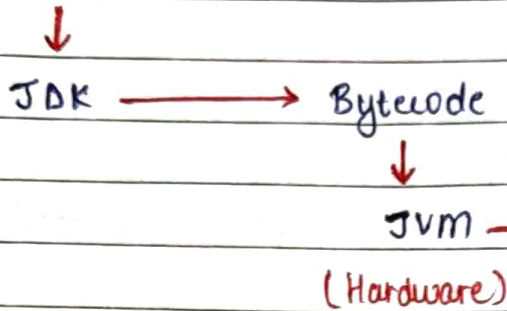 JDK → Bytecode
↓
JVM
(Hardware)